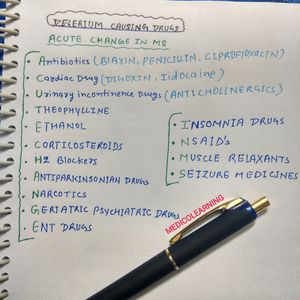 DELERIUM CAUSING DRUGS
ACUTE CHANGE IN MS
Antibiotics (BIAXIN, PENICILLIN, CIPROFLOXACIN)
Cardiac Drug (DIGOXIN, lidocaine)
Urinary incontinence Drugs (ANTICHOLINERGICS)
THEOPHYLLINE
ETHANOL
CORTICOSTEROIDS
H2 Blockers
ANTIPARKINSONIAN DRUGS
NARCOTICS
GERIATRIC PSYCHIATRIC DRUGS
ENT DRUGS
INSOMNIA DRUGS
NSAID's
MUSCLE RELAXANTS
SEIZURE MEDICINES
MEDICOLEARNING